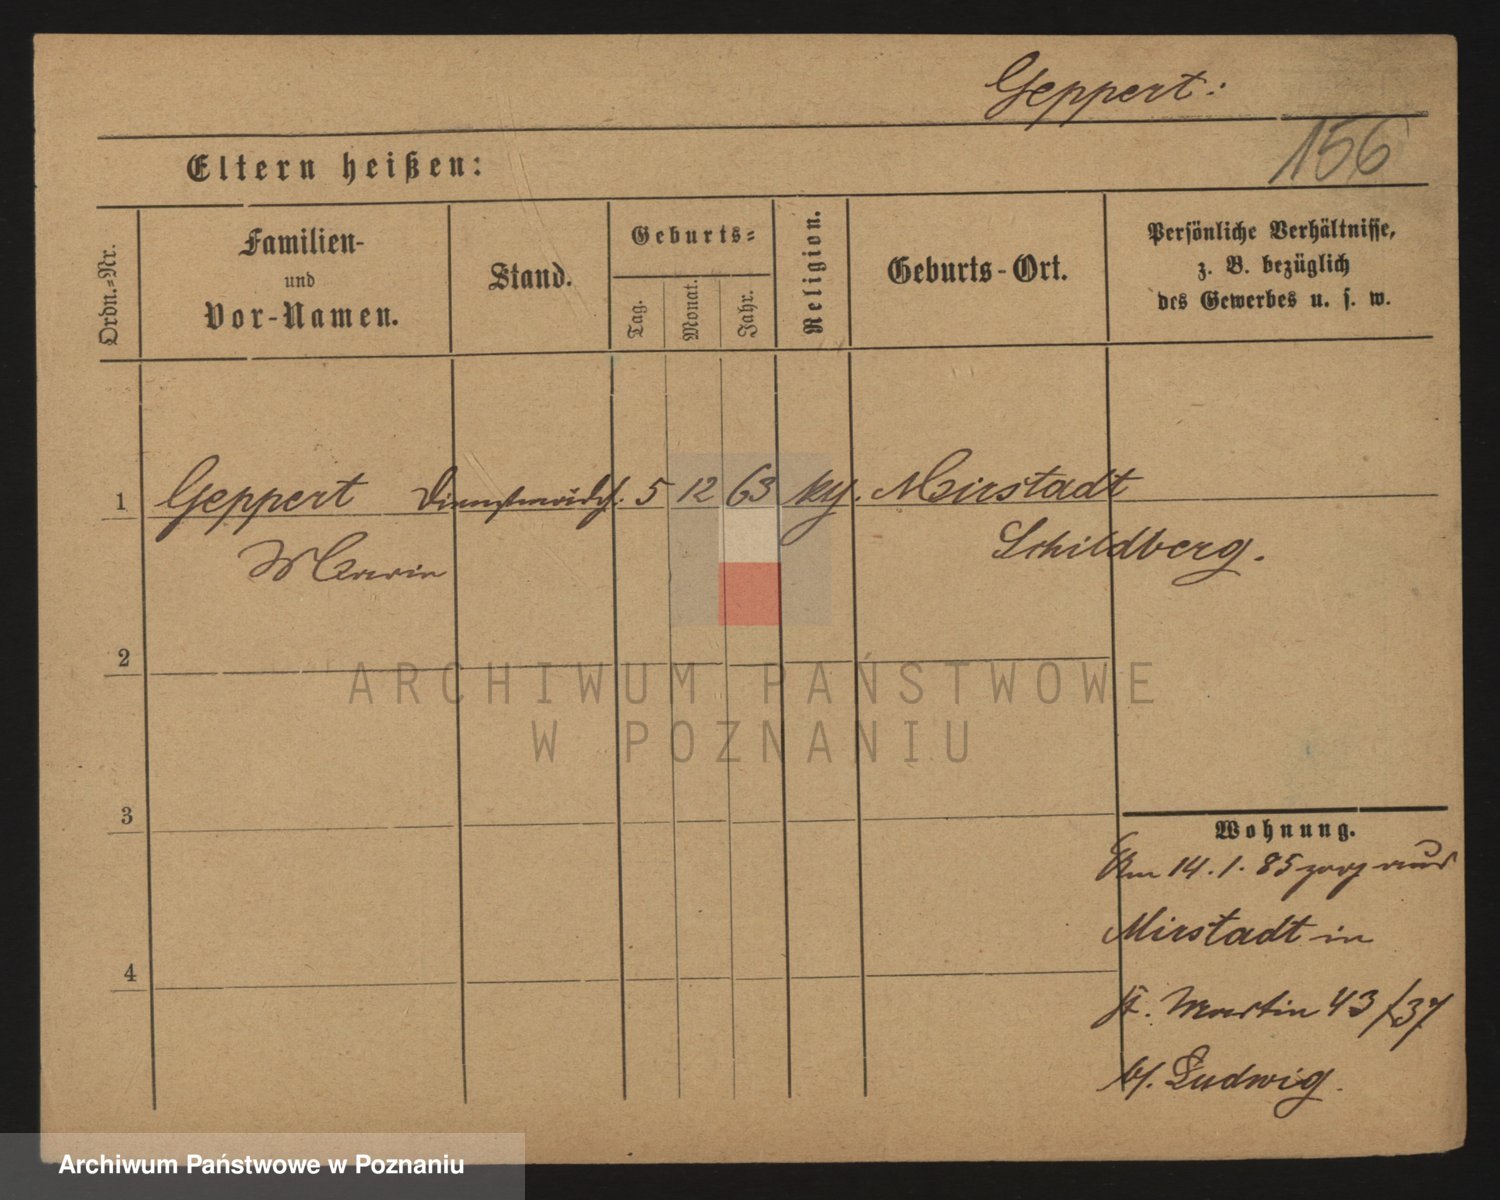 Geppert:
156
Eltern heißen:
Ordn.-Nr.
Familien-
und
Vor-Namen.
Stand.
Geburts-
Tag.
Monat.
Jahr.
Religion.
Geburts-Ort.
Persönliche Verhältnisse,
z. B. bezüglich
des Gewerbes u. s. w.
1 Geppert Dienstmädch. 5 12 63 kg. Mirstadt
Maria Schildberg.
2
3
4
Wohnung.
Am 14.1.85 zog aus
Mirstadt in
St. Martin 43/37
b/. Ludwig.
ARCHIWUM PAŃSTWOWE
W POZNANIU
Archiwum Państwowe w Poznaniu